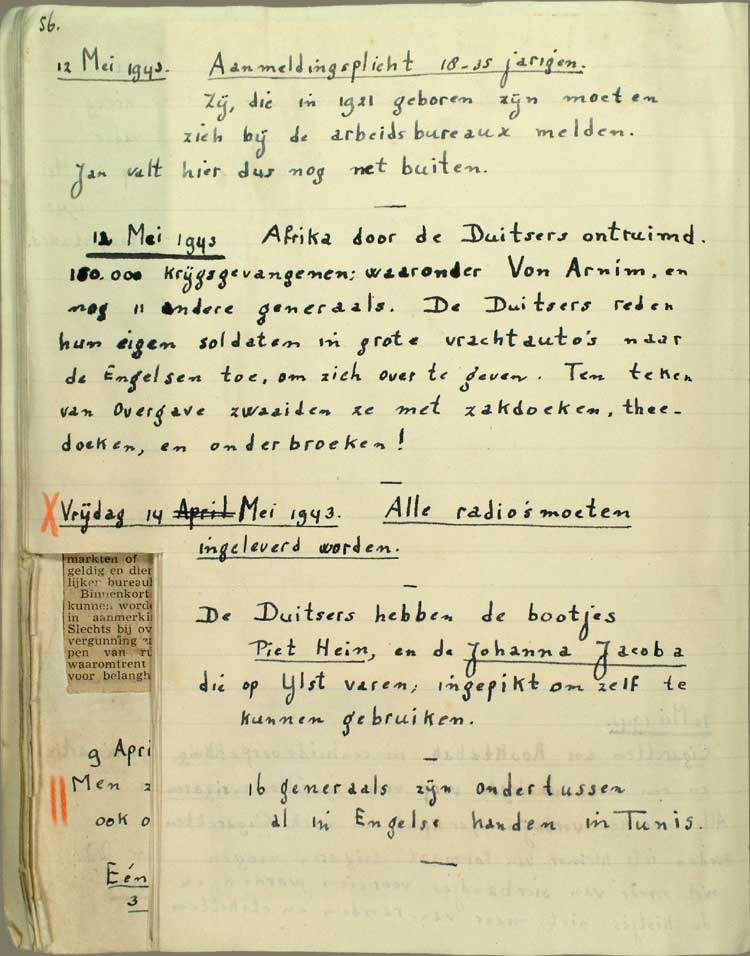 56.
12 Mei 1943. Aanmeldingsplicht 18-35 jarigen.
Zÿ, die in 1921 geboren zÿn moeten
zich bÿ de arbeidsbureaux melden.
Jan valt hier dus nog net buiten.
12 Mei 1943 Afrika door de Duitsers ontruimd.
150.000 krÿgsgevangenen; waaronder Von Arnim, en
nog 11 andere generaals. De Duitsers reden
hun eigen soldaten in grote vrachtauto's naar
de Engelsen toe, om zich over te geven. Ten teken
van Overgave zwaaiden ze met zakdoeken, thee-
doeken, en onderbroeken!
X Vrÿdag 14 April Mei 1943. Alle radio's moeten
ingeleverd worden.
De Duitsers hebben de bootjes
Piet Hein, en de Johanna Jacoba
die op IJlst varen; ingepikt om zelf te
kunnen gebruiken.
16 generaals zÿn ondertussen
al in Engelse handen in Tunis.
markten of
geldig en dien
lijker bureaul
Binnenkort
kunnen worde
in aanmerki
Slechts bij ov
vergunning
pen van ru
waaromtrent
voor belangh
9 Apri
Men z
ook o
Eén
3